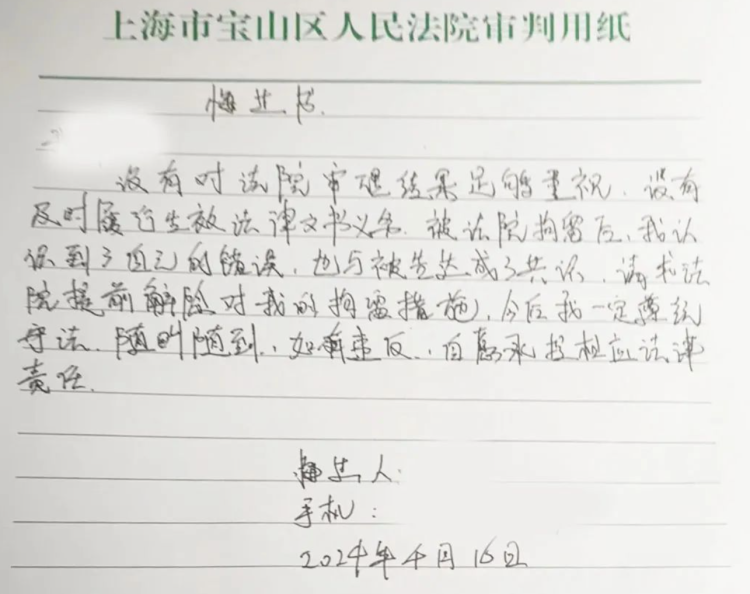 上海市宝山区人民法院审判用纸
悔过书
没有对法院审理结果足够重视。没有
及时履行生效法律文书义务。被法院拘留后，我认
识到了自己的错误，也与被告达成了共识。请求法
院提前解除对我的拘留措施，今后我一定遵纪
守法。随叫随到，如有违反，自愿承担相应法律
责任。
悔过人：
手机：
2024年4月16日